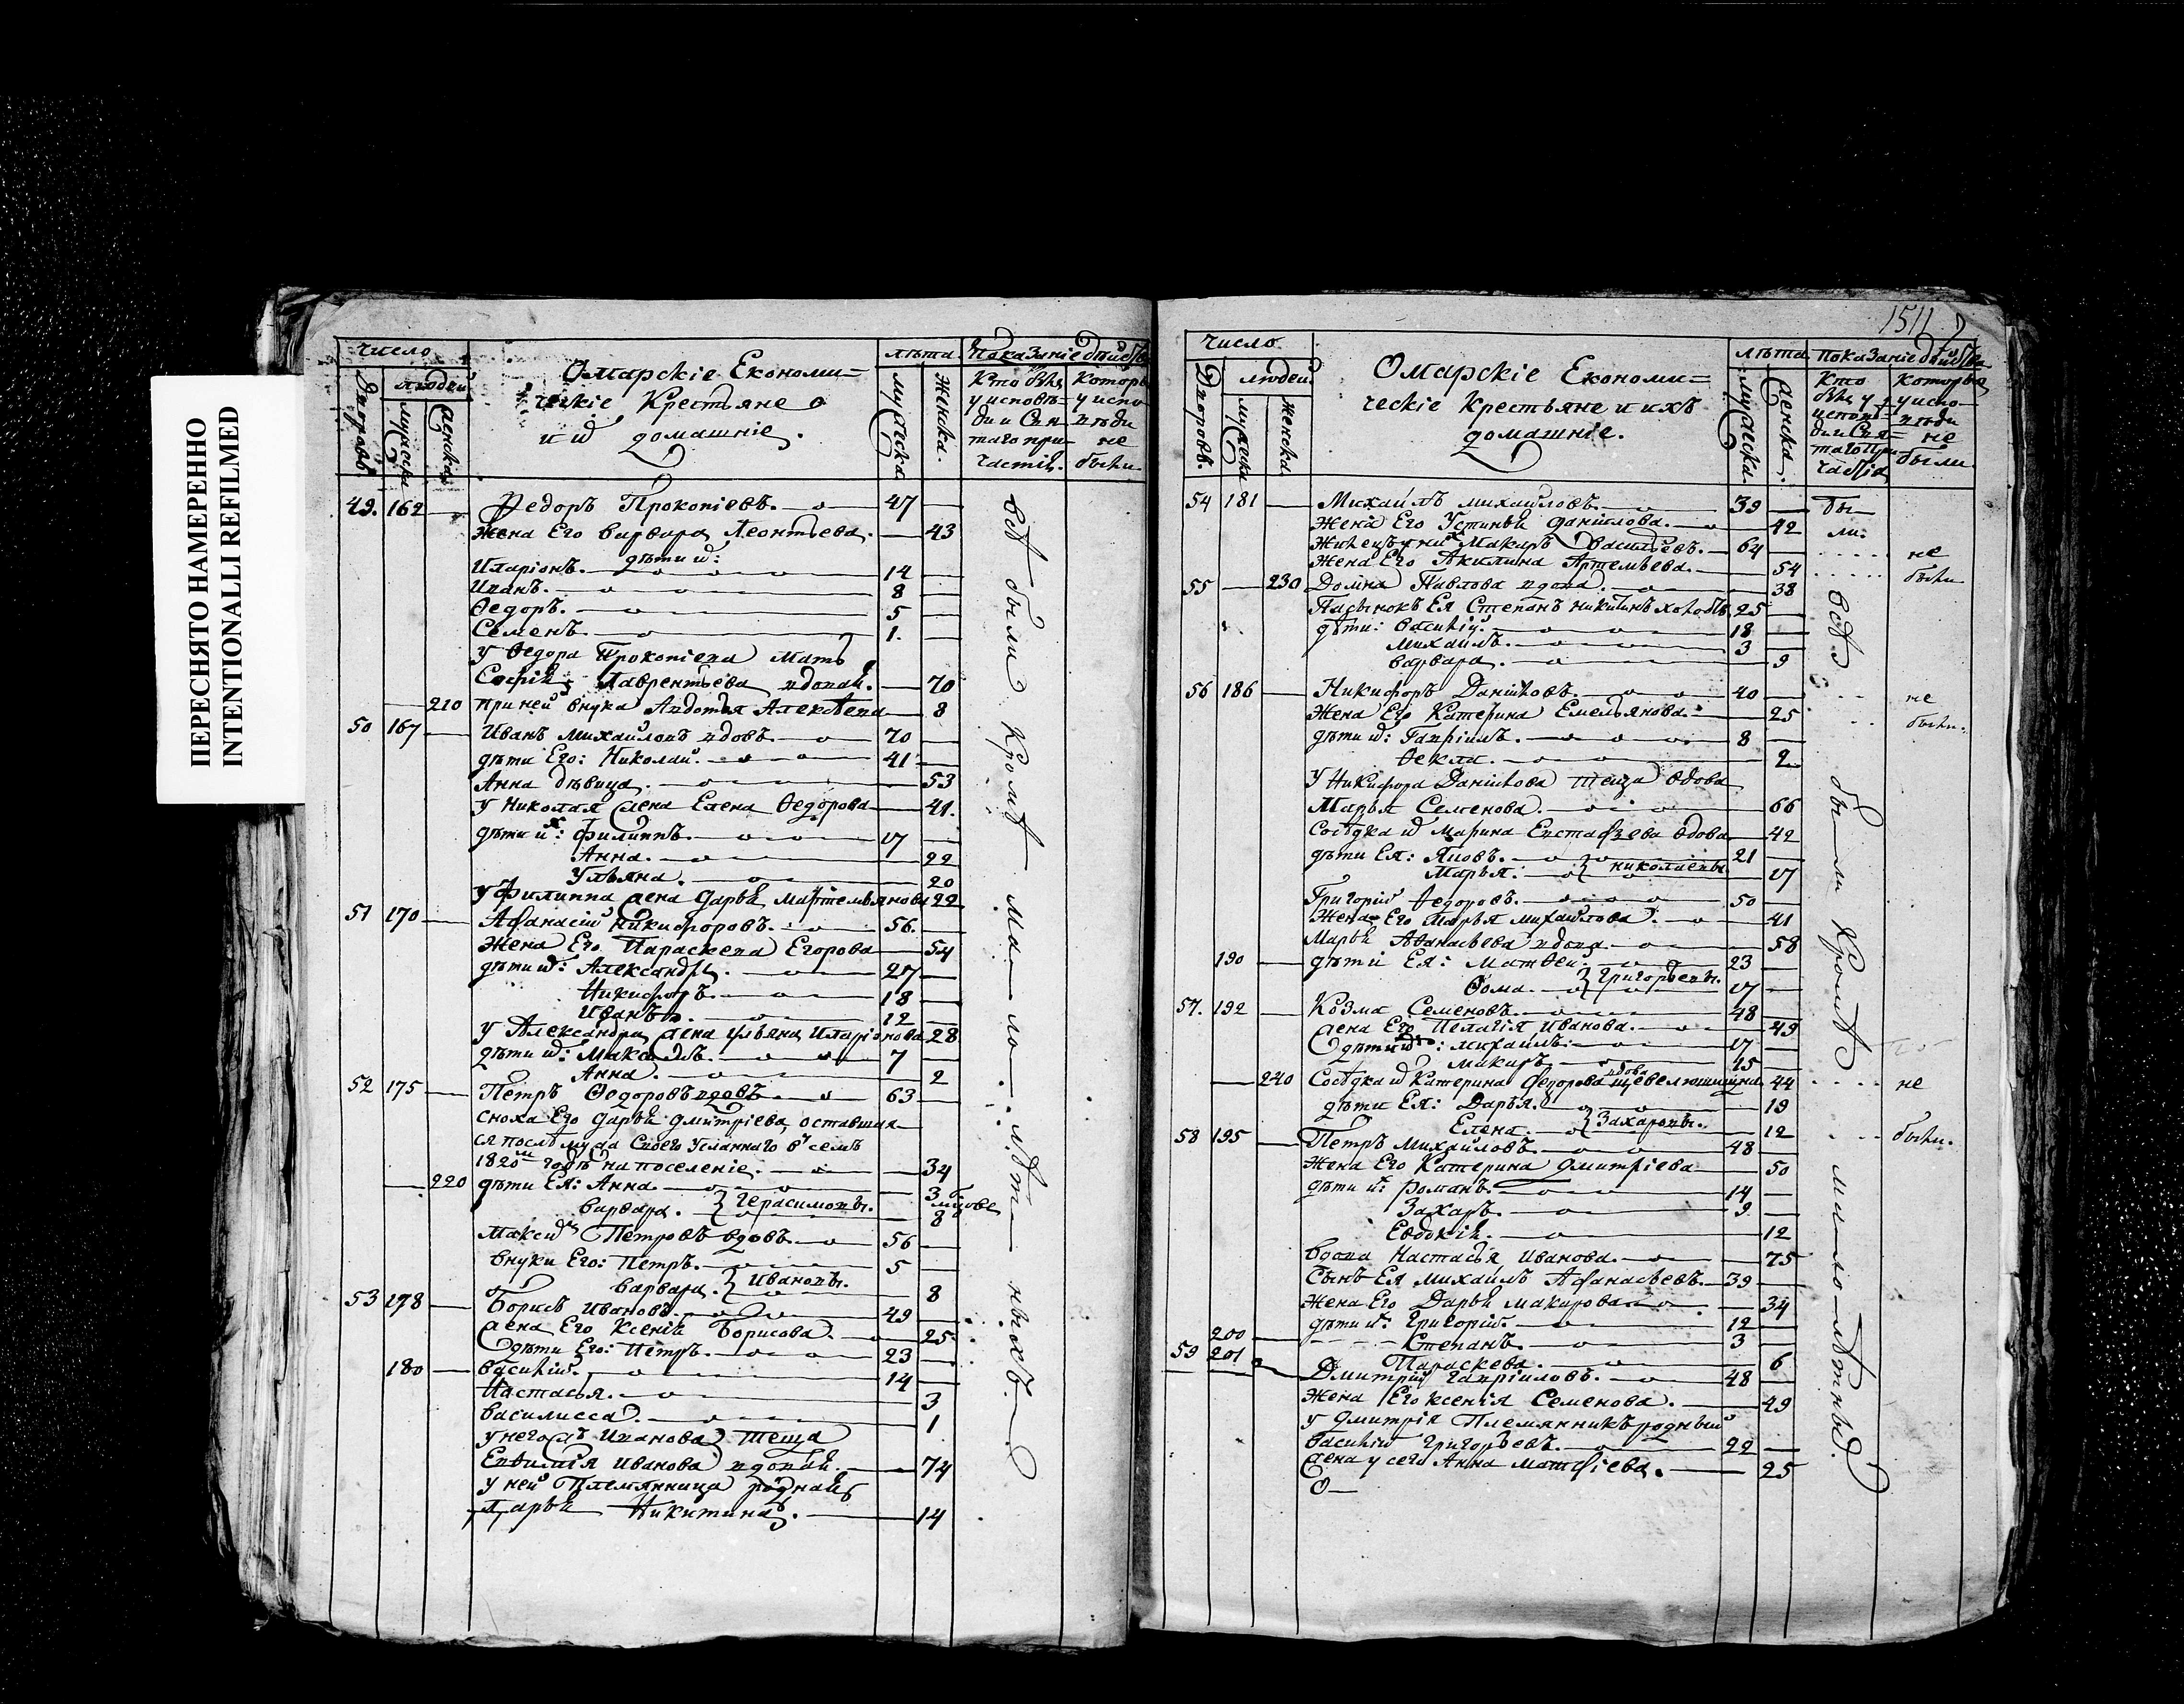 ПЕРЕСНЯТО НАМЕРЕННО
INTENTIONALLI REFILMED
число
людей
Дворовъ
мужеска
женска
Омарскіе Економи=
ческіе Крестьяне
и их домашніе.
лѣта
мужеска
женска.
Показаніе дѣйст
Кто былъ у исповѣ= ди и Свя таго при= частія.
Которы у испо вѣди не были
49. 162 Федоръ Прокопіевъ. 47
Жена Его варвара Леонтьева. 43
дѣти их:
Иларіонъ. 14
Иванъ. 8
Ѳедоръ. 5
Семенъ. 1.
У Ѳедора Прокопіева Мать
Софія Лаврентьева вдовая. 70
210 при ней внука Авдотья Алексѣева 8
50 167 Иванъ михайловъ вдовъ. 70
дѣти Его: Николай. 41
Анна дѣвица. 53
у Николая жена Елена Ѳедорова 41.
дѣти их: Филиппъ. 17
Анна. 22
Ульяна. 20
у Филиппа жена дарья мартемьянова 22
51 170 Афанасій Никифоровъ. 56.
Жена Его Параскева Егорова 54
дѣти их: Александръ. 27
Никифоръ. 18
Иванъ. 12
у Александра жена ульяна Иларіонова 28
дѣти их: Максимъ. 7
Анна. 2
52 175 Петръ Ѳедоровъ вдовъ. 63
сноха Его дарья дмитріева оставшая
ся послѣ мужа Своего Усланнаго въ семъ
1820м годѣ на поселеніе. 34
220 дѣти Ея: Анна 3
варвара. } Герасимовы. 8
Максимъ Петровъ вдовъ. 56
внуки Его: Петръ. 5
варвара. } Ивановы. 8
53 178 Борисъ Ивановъ. 49
жена Его Ксенія Борисова. 25
дѣти Его: Петръ. 23
180 Василій. 14
Настасья. 3
Василисса. 1
у него ж Иванова теща
Евфимія Иванова вдовая. 74
у ней Племянница родная
Дарья Никитина. 14
всѣ были кромѣ мало-лѣт-ныхъ.
1511
число
людей
Дворовъ.
мужеска
женска
Омарскіе Економи=
ческіе Крестьяне и ихъ
домашніе.
лѣта
мужеска.
женска.
показаніе дѣйств
Кто былъ у исповѣ= ди и Свя= таго При частія
которые у испо= вѣди не были
54 181 Михаилъ михайловъ. 39 бы
Жена Его Устинья данилова. 42 ли.
Жилецъ у них Макаръ васильевъ. 64 не
Жена Его Акилина Артемьева. 54 были
55 230 Домна Павлова вдова. 38
Пасынокъ Ея Степанъ никитинъ холостъ. 25
дѣти: василій. 18
михаилъ. 3
варвара. 9
56 186 Никифоръ Даниловъ. 40 не
Жена Его Катерина Емельянова. 25 были.
дѣти их: Гавріилъ. 8
Ѳекла. 2
У Никифора Данилова теща вдова
Марья Семенова. 66
Сосѣдка их Марина Евстафьева вдова 42
дѣти Ея: Яковъ. 21
Марья. } николаевы 17
Григорій Ѳедоровъ. 50
Жена Его Марья михайлова. 41
Марья Афанасьева вдова. 58
190 дѣти Ея: Матвей. 23
Ѳома. } Григорьевы. 17
57. 192 Козма Семеновъ. 48
жена Его Пелагія Иванова. 49
дѣти их: михаилъ. 17
макаръ. 15
240 Сосѣдка их Катерина Федорова вдова 44 не
дѣти Ея: Дарья. 19
Елена. } Захаровы. 12 были.
58 195 Петръ Михайловъ. 48
Жена Его Катерина дмитріева 50
дѣти их: романъ. 14
Захаръ. 9
Евдокія. 12
вдова Настасья Иванова. 75
Сынъ Ея михаилъ Афанасьевъ. 39
Жена Его Дарья макарова. 34
дѣти их: Григорій. 12
200 Степанъ. 3
Параскева. 6
59 201 Дмитрій Гавріиловъ. 48
Жена Его Ксенія Семенова. 49
у дмитрія Племянникъ родный
василій Григорьевъ. 22
жена у сего Анна матфіева. 25
всѣ были кромѣ мало-лѣтных.